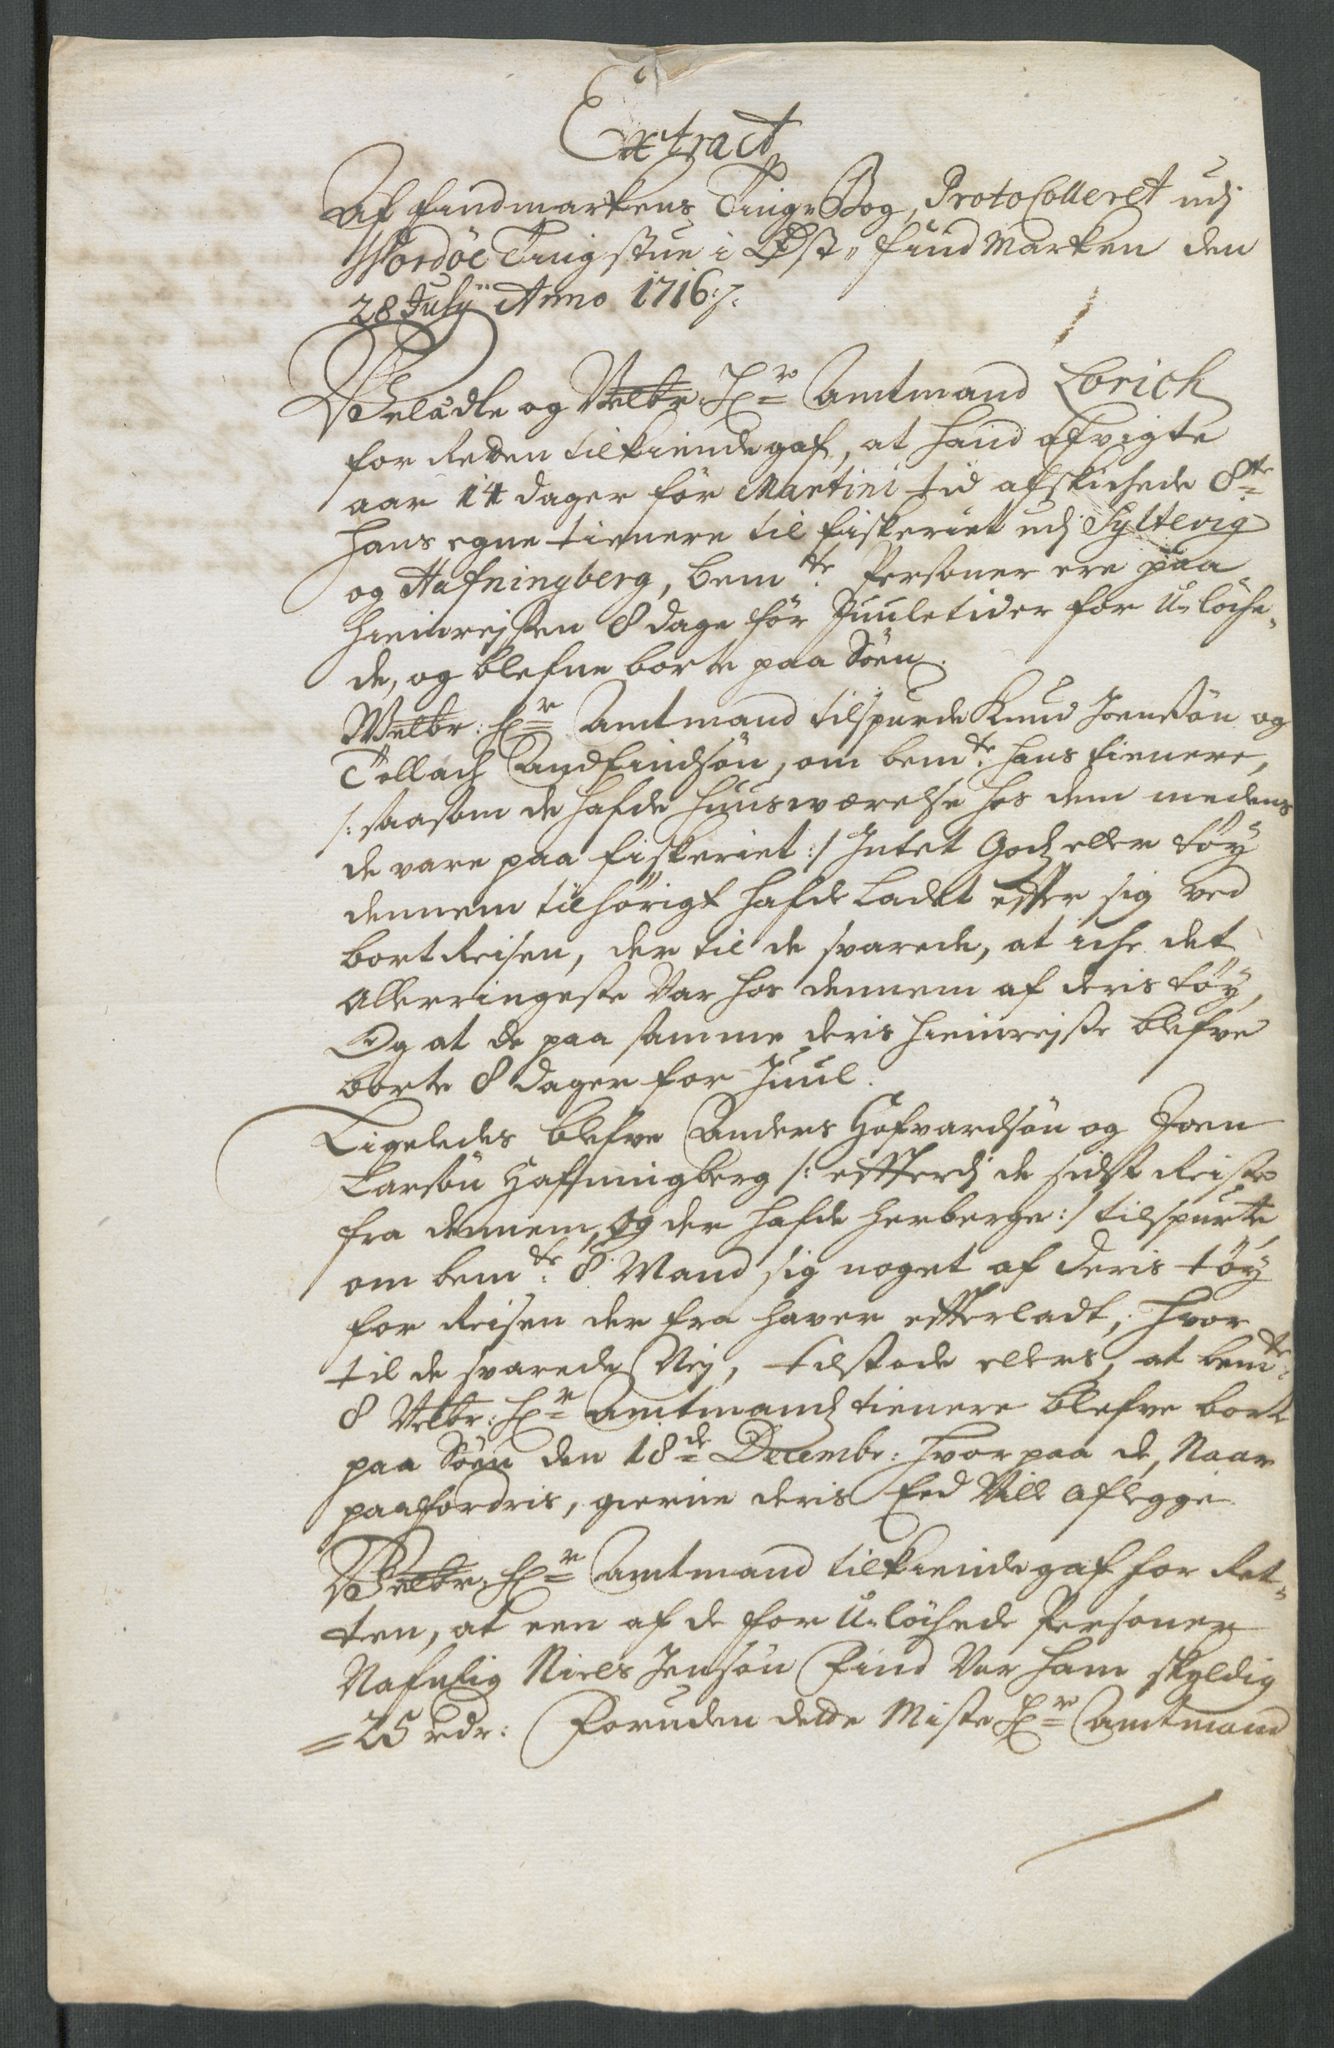 Extract
Af findmarkens Ting-Bog, Protocolleret udj
Wordöe Tingstue i Øst-findMarken den
28 July Anno 1716:/.
Velædle og Velbr: Hr Amtmand Lorich
for Retten tilkiendegaf, at hand afvigte
aar 14 dager før Martini tid afskichede 8te
hans egne tienere til fiskeriet udj Syltevig
og Hafningberg, bemte Personer ere paa
Hiemreisen 8 dage før Juuletider for u-løche-
de, og blefne borte paa Søen.
Welbr: Hr Amtmand tilspurde Knud Joensøn og
Tollach Andfindsøn, om bemte hans tienere,
/: saasom de hafde huusværelse hos dem medens
de vare paa fiskeriet :/ Intet Godz eller tøy
dennem tilhørigt hafde Ladet effter sig ved
bortReisen, der til de svarede, at iche det
Allerringeste Var hos dennem af deris tøy,
Og at de paa samme deris hiemrejse blefve
borte 8 dager for Juul.
Ligeledes blefve Anders Hafvardsøn og Joen
Larsøn Hafningberg /: effterdj de sidst Reiste
fra dennem, og der hafde herberge :/ tilspurte
om bemte 8 Mand sig noget af deris tøy
for Reisen der fra haver effterladt, hvor
til de svarede Nej, tilstode ellers, at bemte
8 Velbr: Hr Amtmandz tienere blefve borte
paa Søen den 18de Decembr: hvorpaa de, Naar
paafordris, gierne deris Eed Ville aflegge
Velbr: Hr Amtmand tilkiendegaf for Ret-
ten, at een af de for u-løchede Personer
Nafnlig Niels Jensøn Find Var ham skyldig
25 rdr: Foruden dette Miste Hr Amtmand